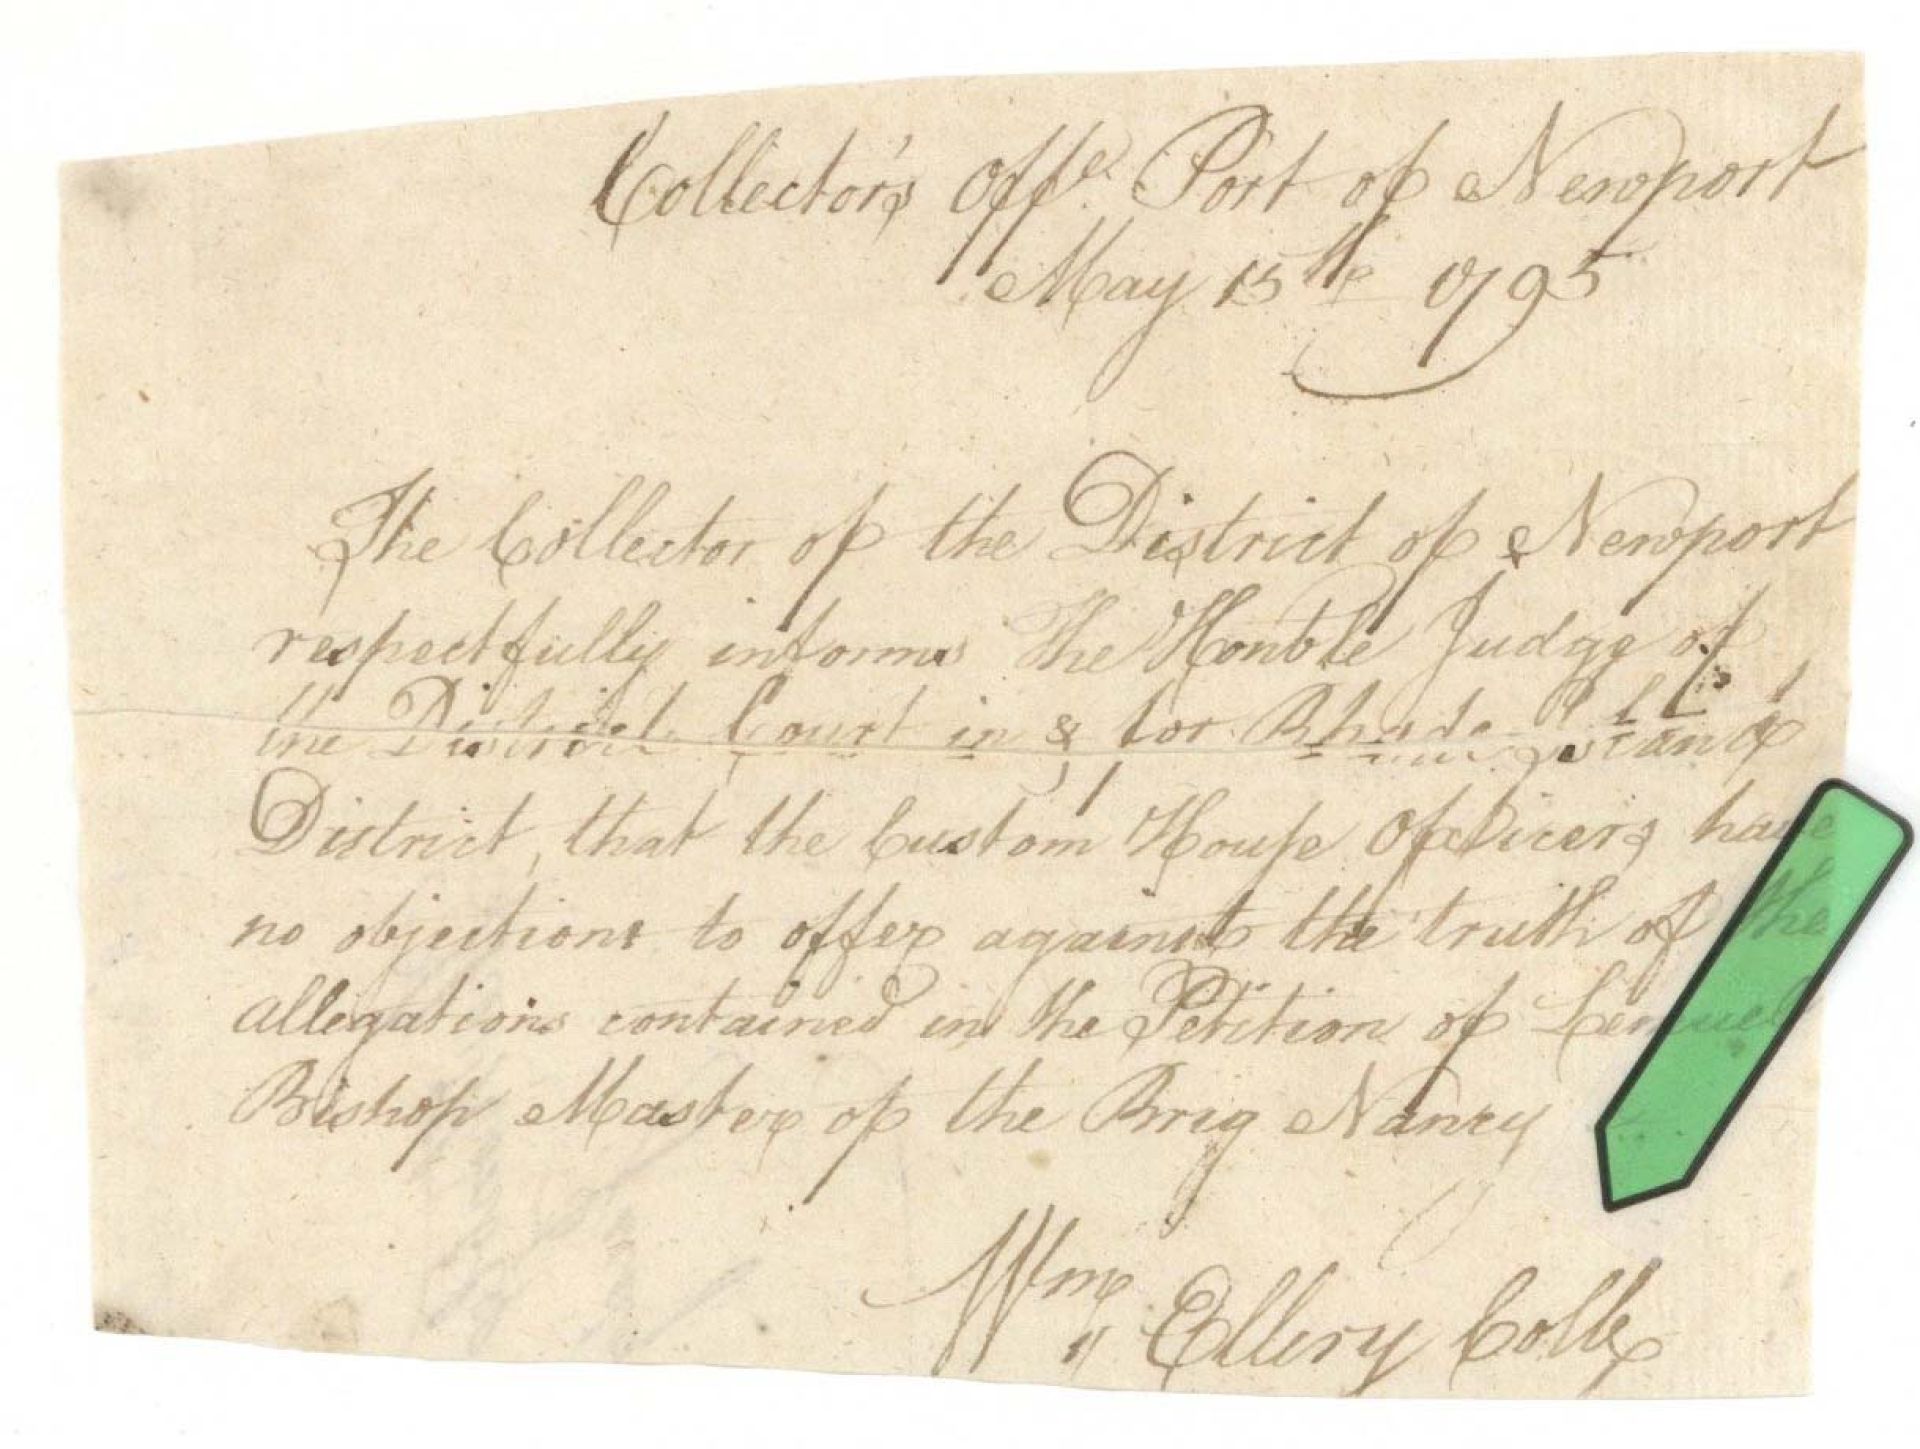 Collector's Offe. Port of Newport
May 15th 1795
The Collector of the District of Newport
respectfully informs the Honble Judge of
the District Court in & for Rhode Island
District, that the Custom House Officers have
no objections to offer against the truth of the
allegations contained in the Petition of Lemuel
Bishop Master of the Brig Nancy
Wm Ellery Colle